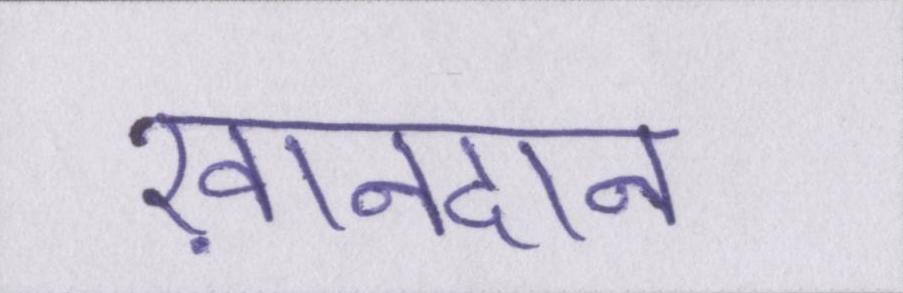 ख़ानदान